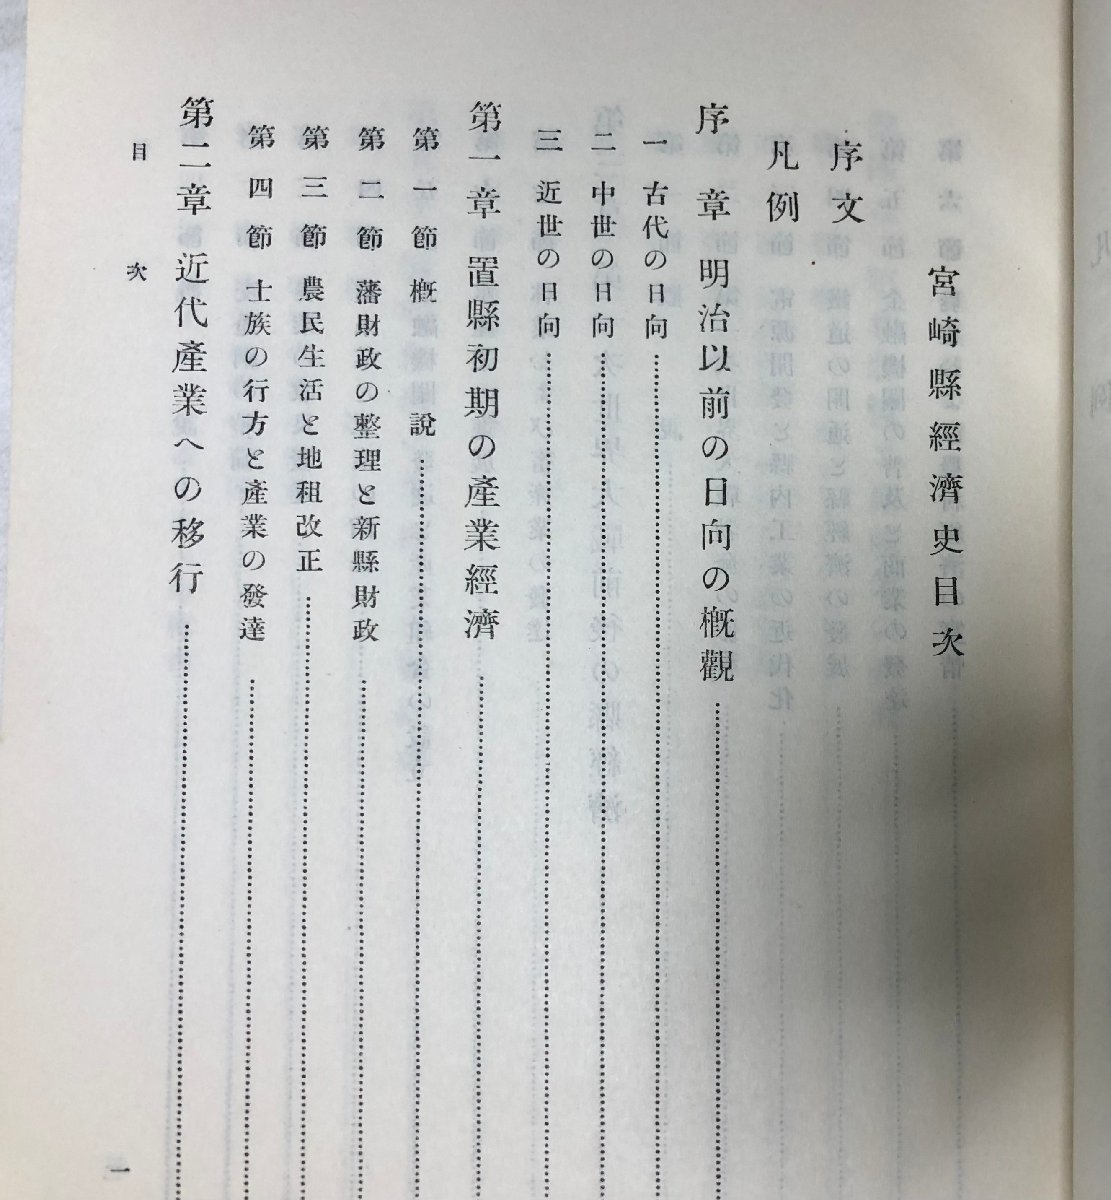 宮崎縣經濟史目次
序文
凡例
序章 明治以前の日向の概觀
一 古代の日向
二 中世の日向
三 近世の日向
第一章 置縣初期の產業經濟
第一節 概說
第二節 藩財政の整理と新縣財政
第三節 農民生活と地租改正
第四節 士族の行方と產業の發達
第二章 近代產業への移行
目次
一